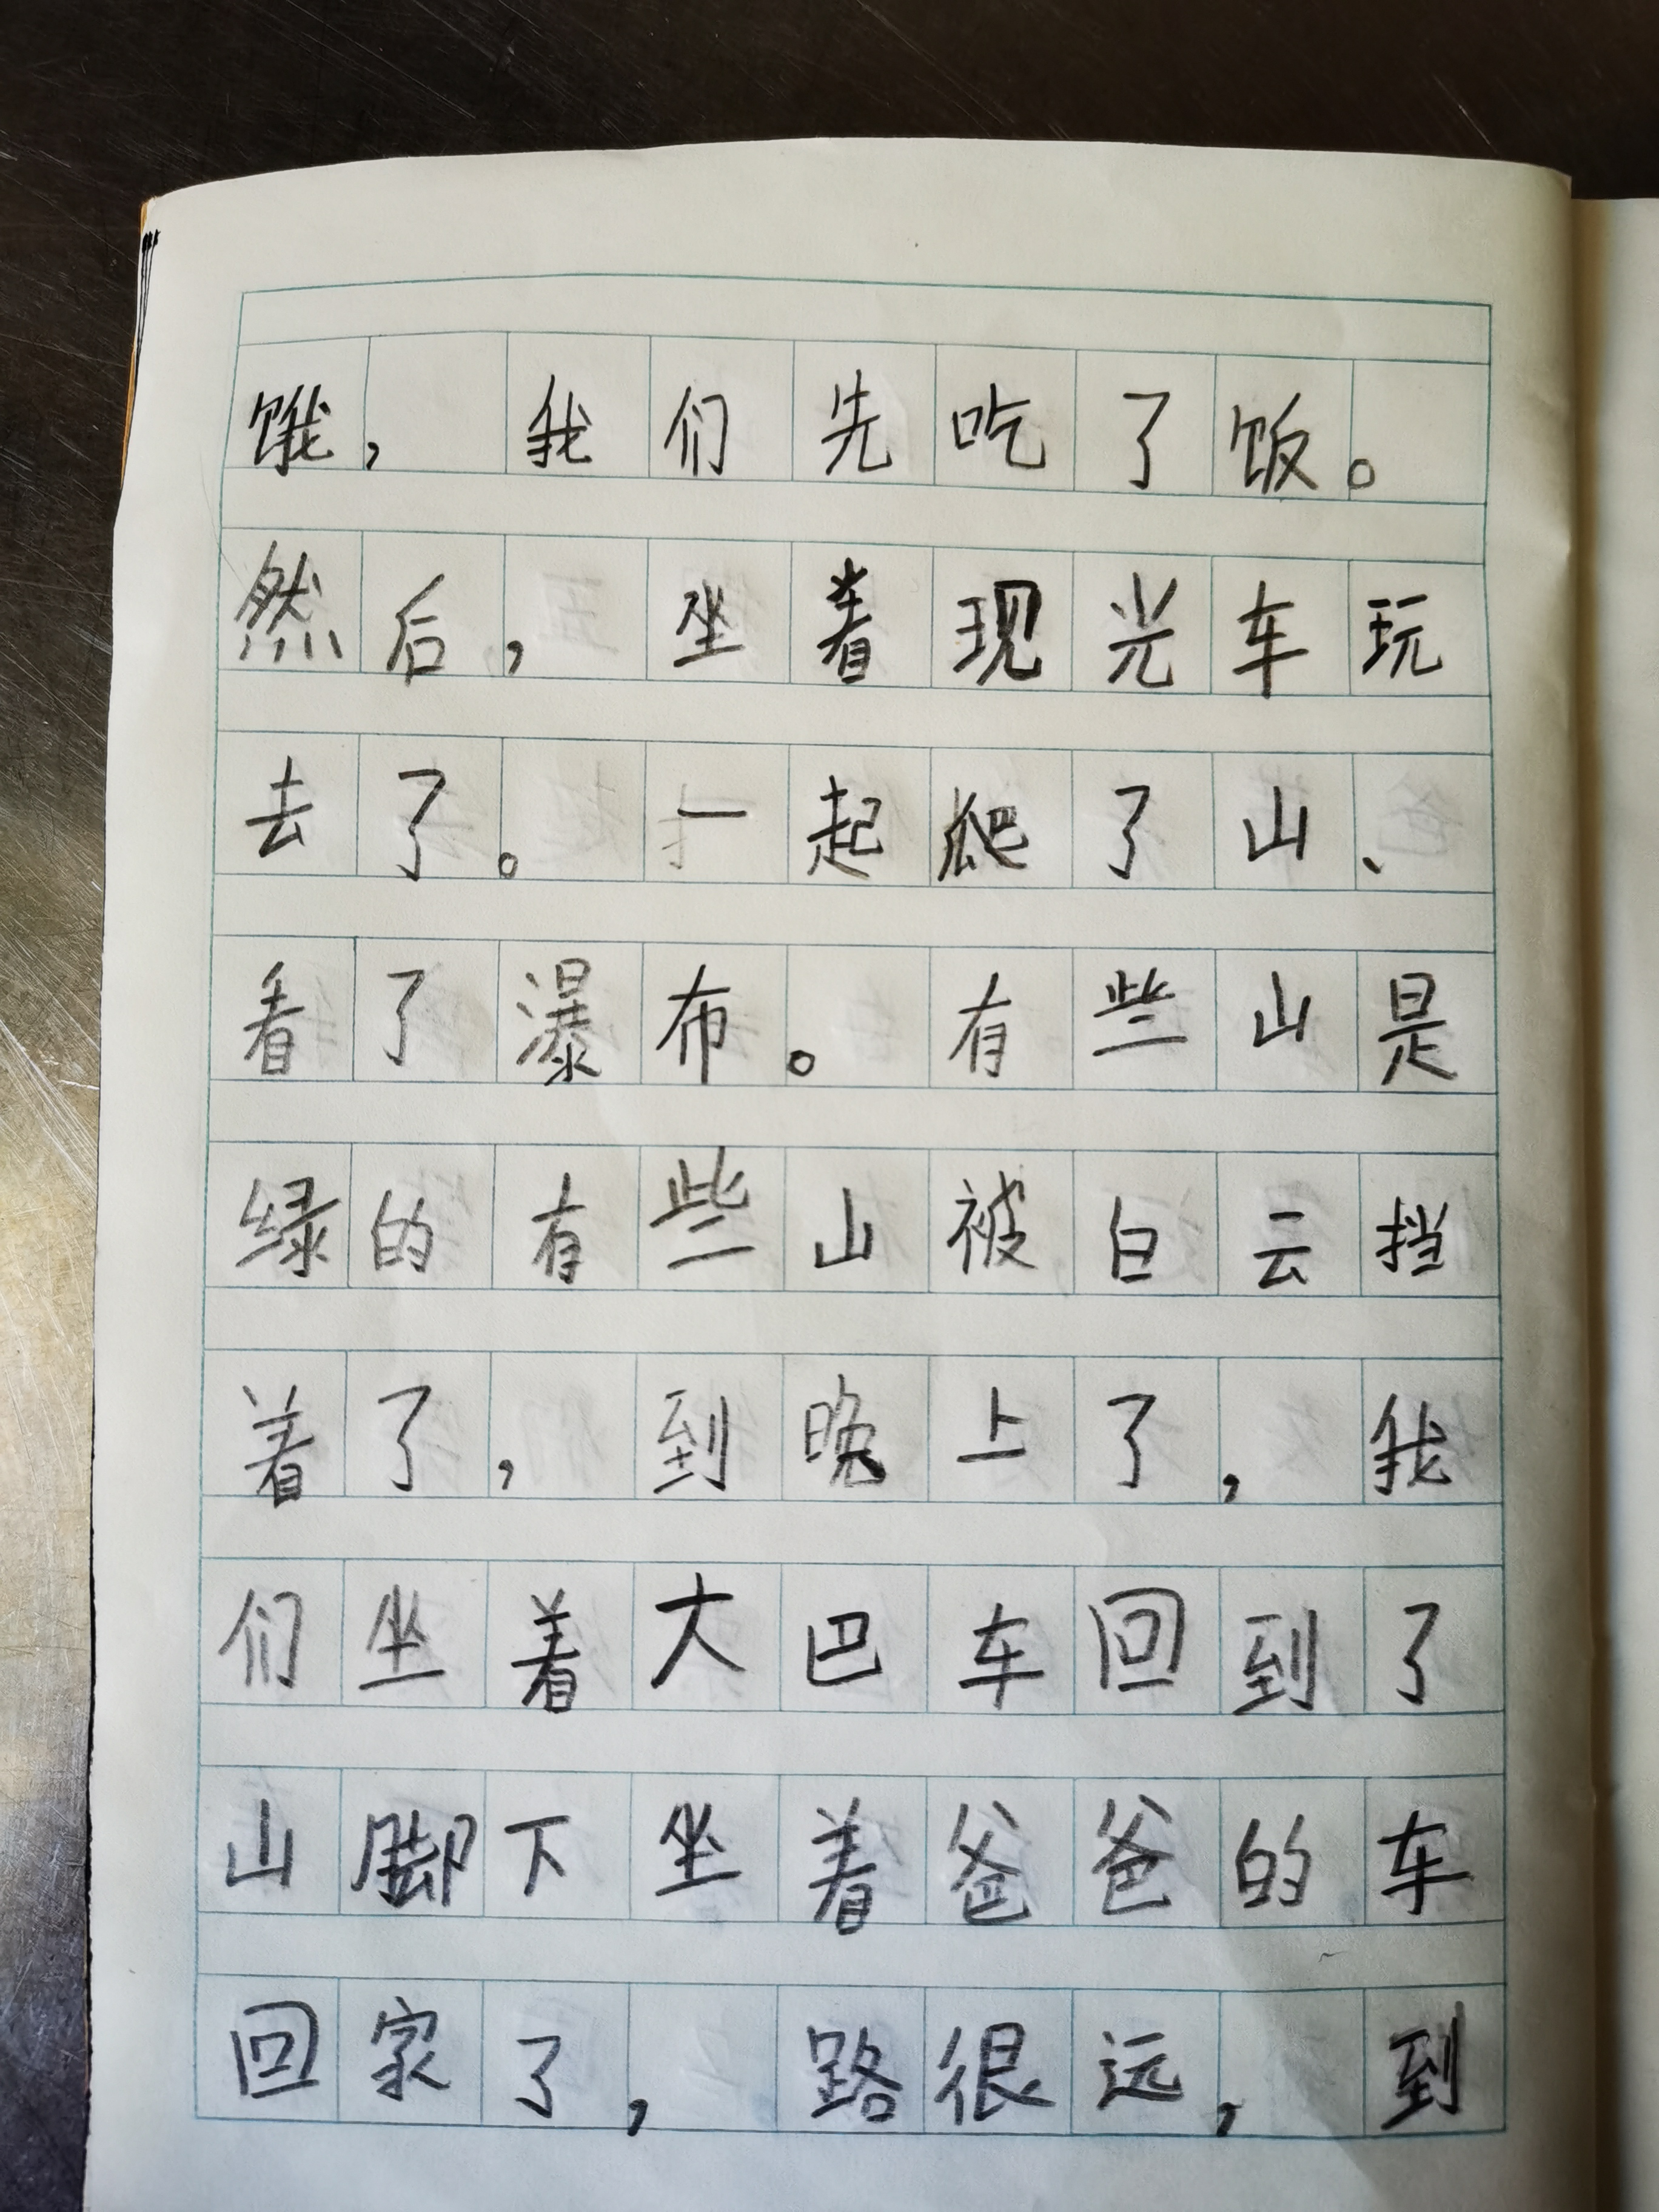 饿，我们先吃了饭。
然后，坐着现光车玩
去了。一起爬了山、
看了瀑布。有些山是
绿的有些山被白云挡
着了，到晚上了，我
们坐着大巴车回到了
山脚下坐着爸爸的车
回家了，路很远，到